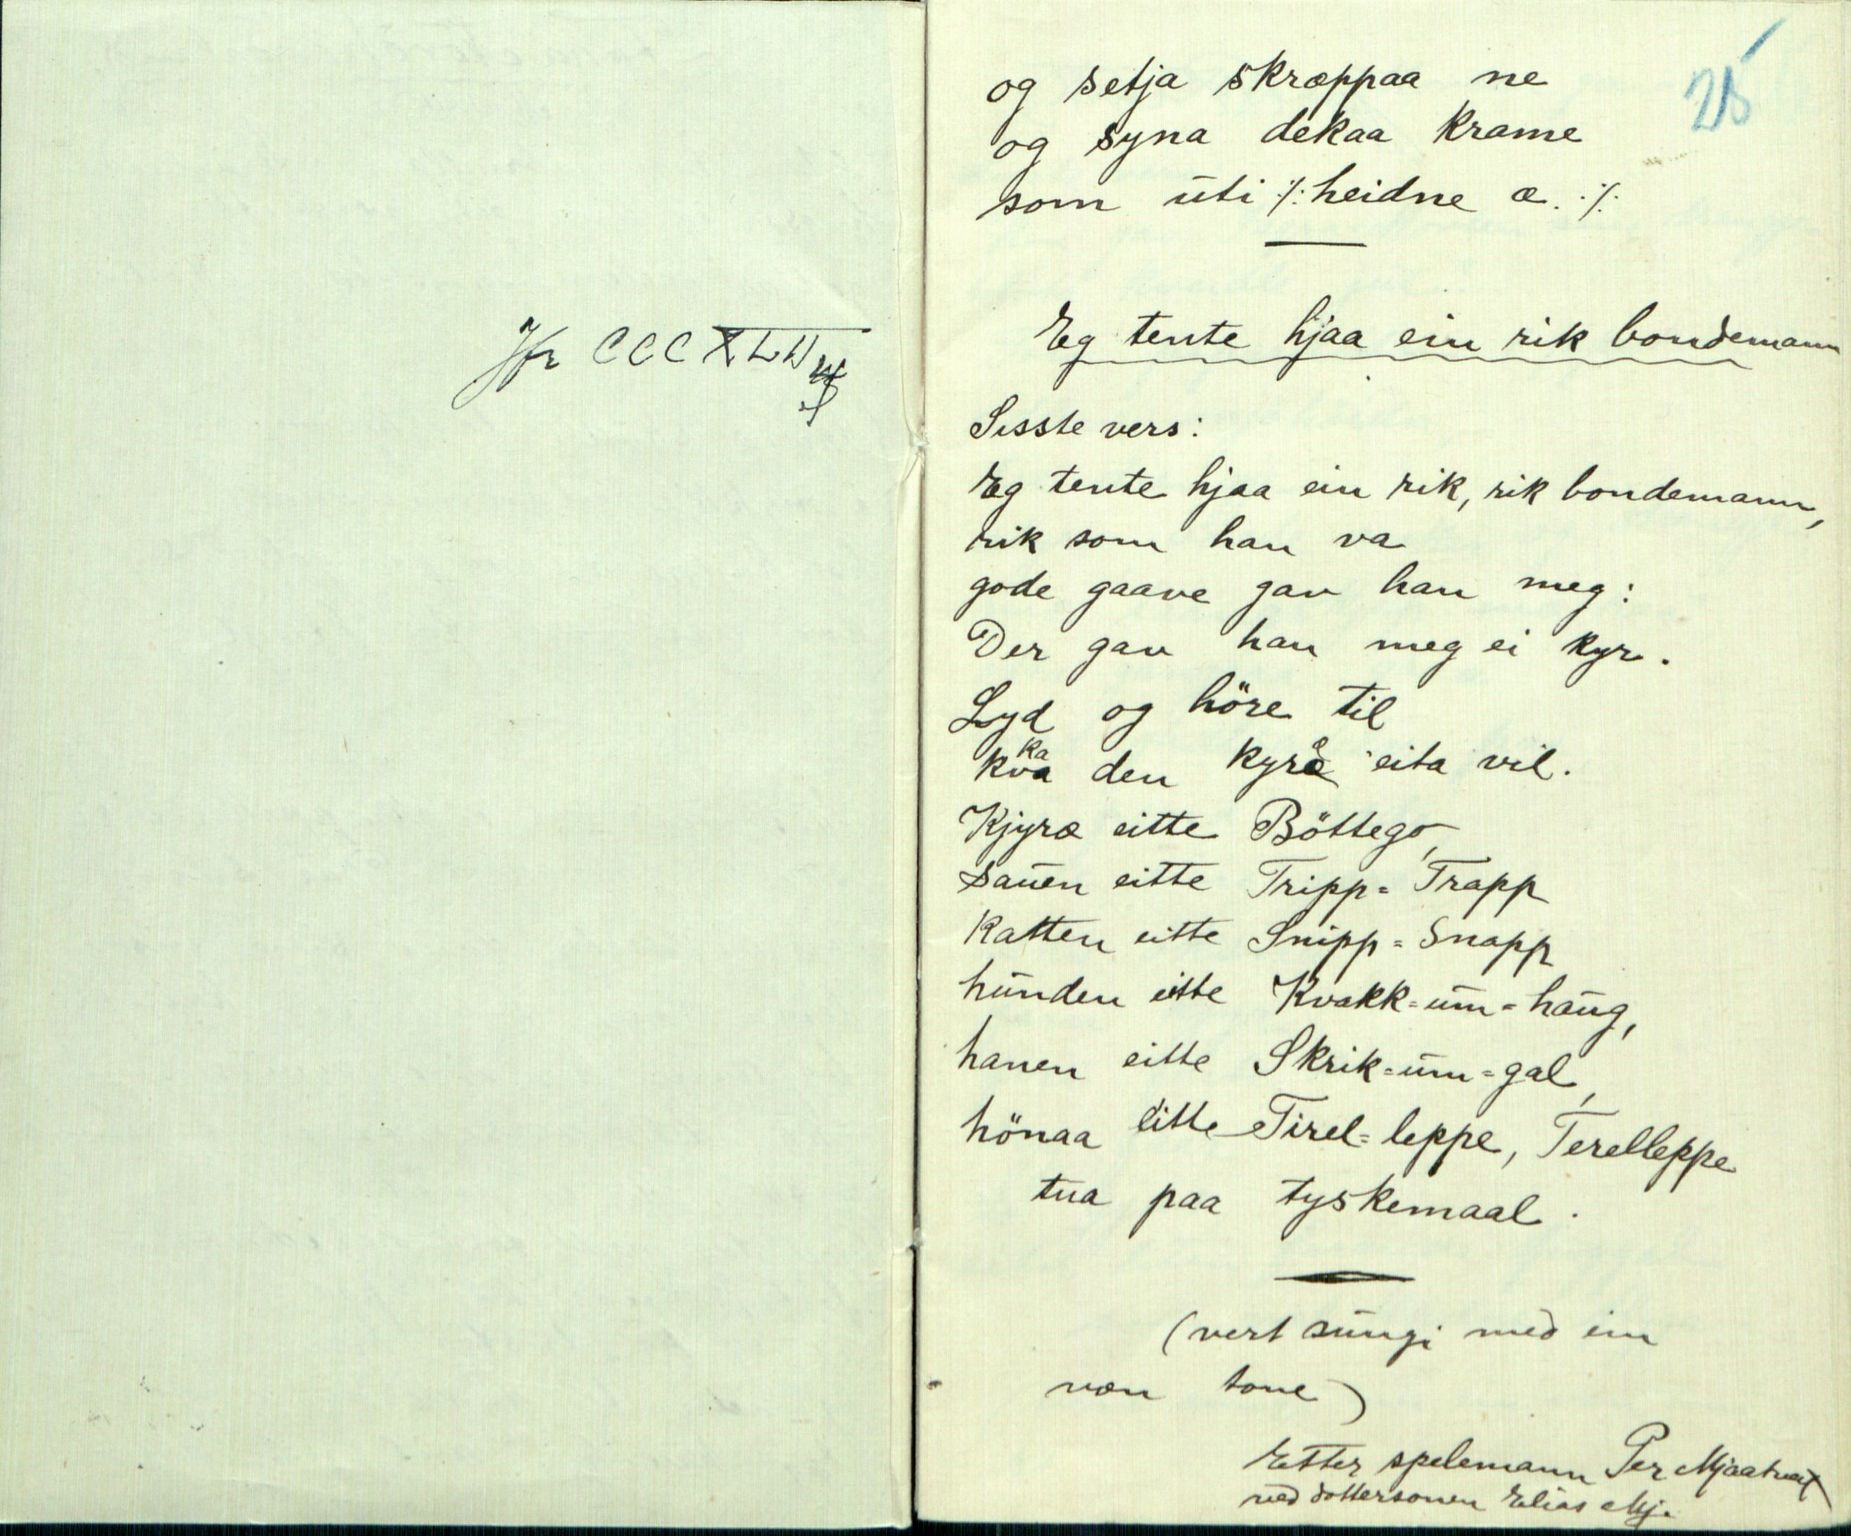 Jfr CCCXLII
25
og setja skræppaa ne
og syna dekaa krame
som uti :/: heidne æ. :/:
Eg tente hjaa ein rik bondemann
Sisste vers:
Eg tente hjaa ein rik, rik bondemann,
rik som han va
gode gaave gav han meg:
Der gav han meg ei kyr.
Lyd og höre til
ka
kva den kyræ eita vil.
Kjyræ eitte Böttego,
sauen eitte Tripp-Trapp
Katten eitte Snipp-Snapp
hunden eitte Kvakk-um-haug,
hanen eitte Skrik-um-gal,
hönaa eitte Tirel-leppe, Terelleppe
tua paa tyskemaal.
(vert sungi med ein
væn tone)
Etter spelemann Per Mjaatveit
ved dottersonen Elias Mj.